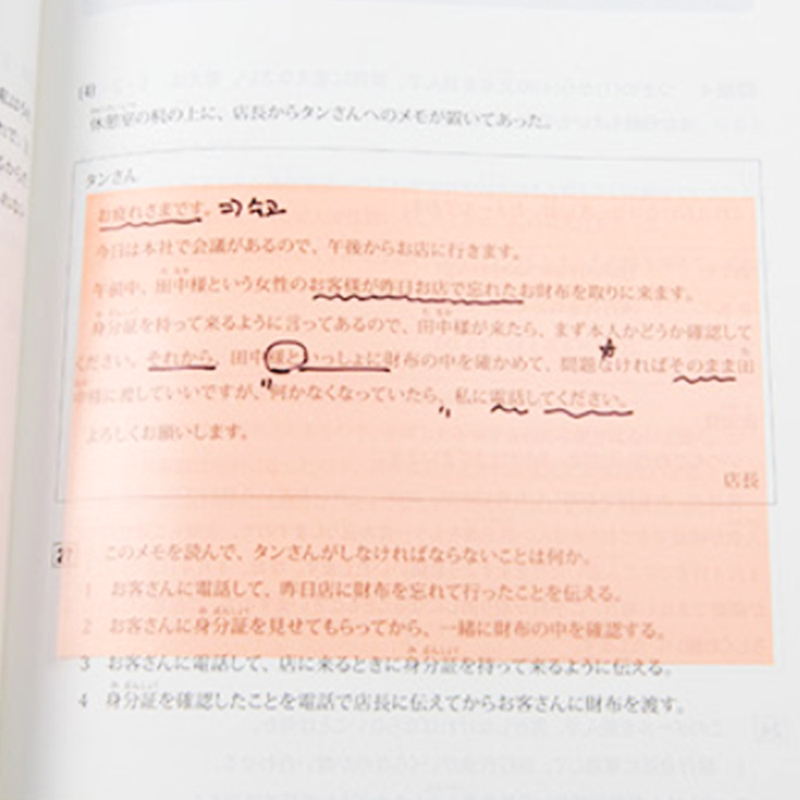 (4)
休憩室の机の上に、店長からタンさんへのメモが置いてあった。
タンさん
お疲れさまです。⇒ 수고
今日は本社で会議があるので、午後からお店に行きます。
午前中、田中様という女性のお客様が昨日お店で忘れたお財布を取りに来ます。
身分証を持って来るように言ってあるので、田中様が来たら、まず本人かどうか確認して
ください。それから、田中様といっしょに財布の中を確かめて、問題なければそのまま田
中様に渡していいですが、何かなくなっていたら、私に電話してください。
よろしくお願いします。
店長
27 このメモを読んで、タンさんがしなければならないことは何か。
1 お客さんに電話して、昨日店に財布を忘れて行ったことを伝える。
2 お客さんに身分証を見せてもらってから、一緒に財布の中を確認する。
3 お客さんに電話して、店に来るときに身分証を持って来るように伝える。
4 身分証を確認したことを電話で店長に伝えてからお客さんに財布を渡す。